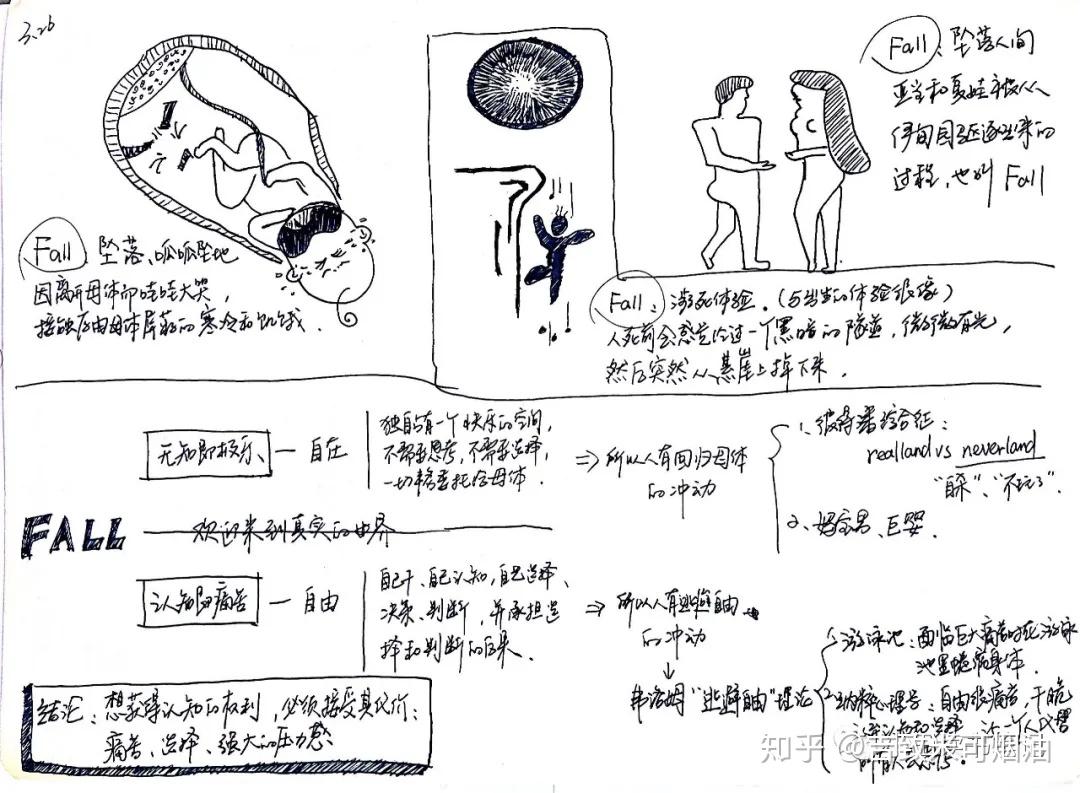 3.26
Fall: 坠落、呱呱坠地
因离开母体而哇哇大哭,
接触了由母体屏蔽的寒冷和饥饿.
Fall: 坠落人间
亚当和夏娃被从
伊甸园驱逐出来的
过程,也叫 Fall
Fall: 濒死体验.(与出生的体验很像)
人死前会感觉经过一个黑暗的隧道,微微有光,
然后突然从悬崖上掉下来.
无知即极乐、— 自在
独自占有一个快乐的空间,
不需要思考,不需要选择,
一切都委托给母体.
⇒ 所以人有回归母体
的冲动
1、彼得潘综合征:
realland vs neverland
"躲"、"不玩了"
2、妈宝男、巨婴.
FALL — 欢迎来到真实的世界
认知即痛苦 — 自由
自己干、自己认知,自己选择、
决策、判断,并承担选
择和判断的后果.
⇒ 所以人有逃避自由
的冲动
→ 弗洛姆"逃避自由"理论
1、游泳池:面临巨大痛苦时在游泳
池里蜷缩身体.
2、纳粹心理学:自由很痛苦,干脆
认知和选择 让一个人代替
结论:想获得认知的权利,必须接受其代价:
痛苦、选择、强大的压力感
知乎